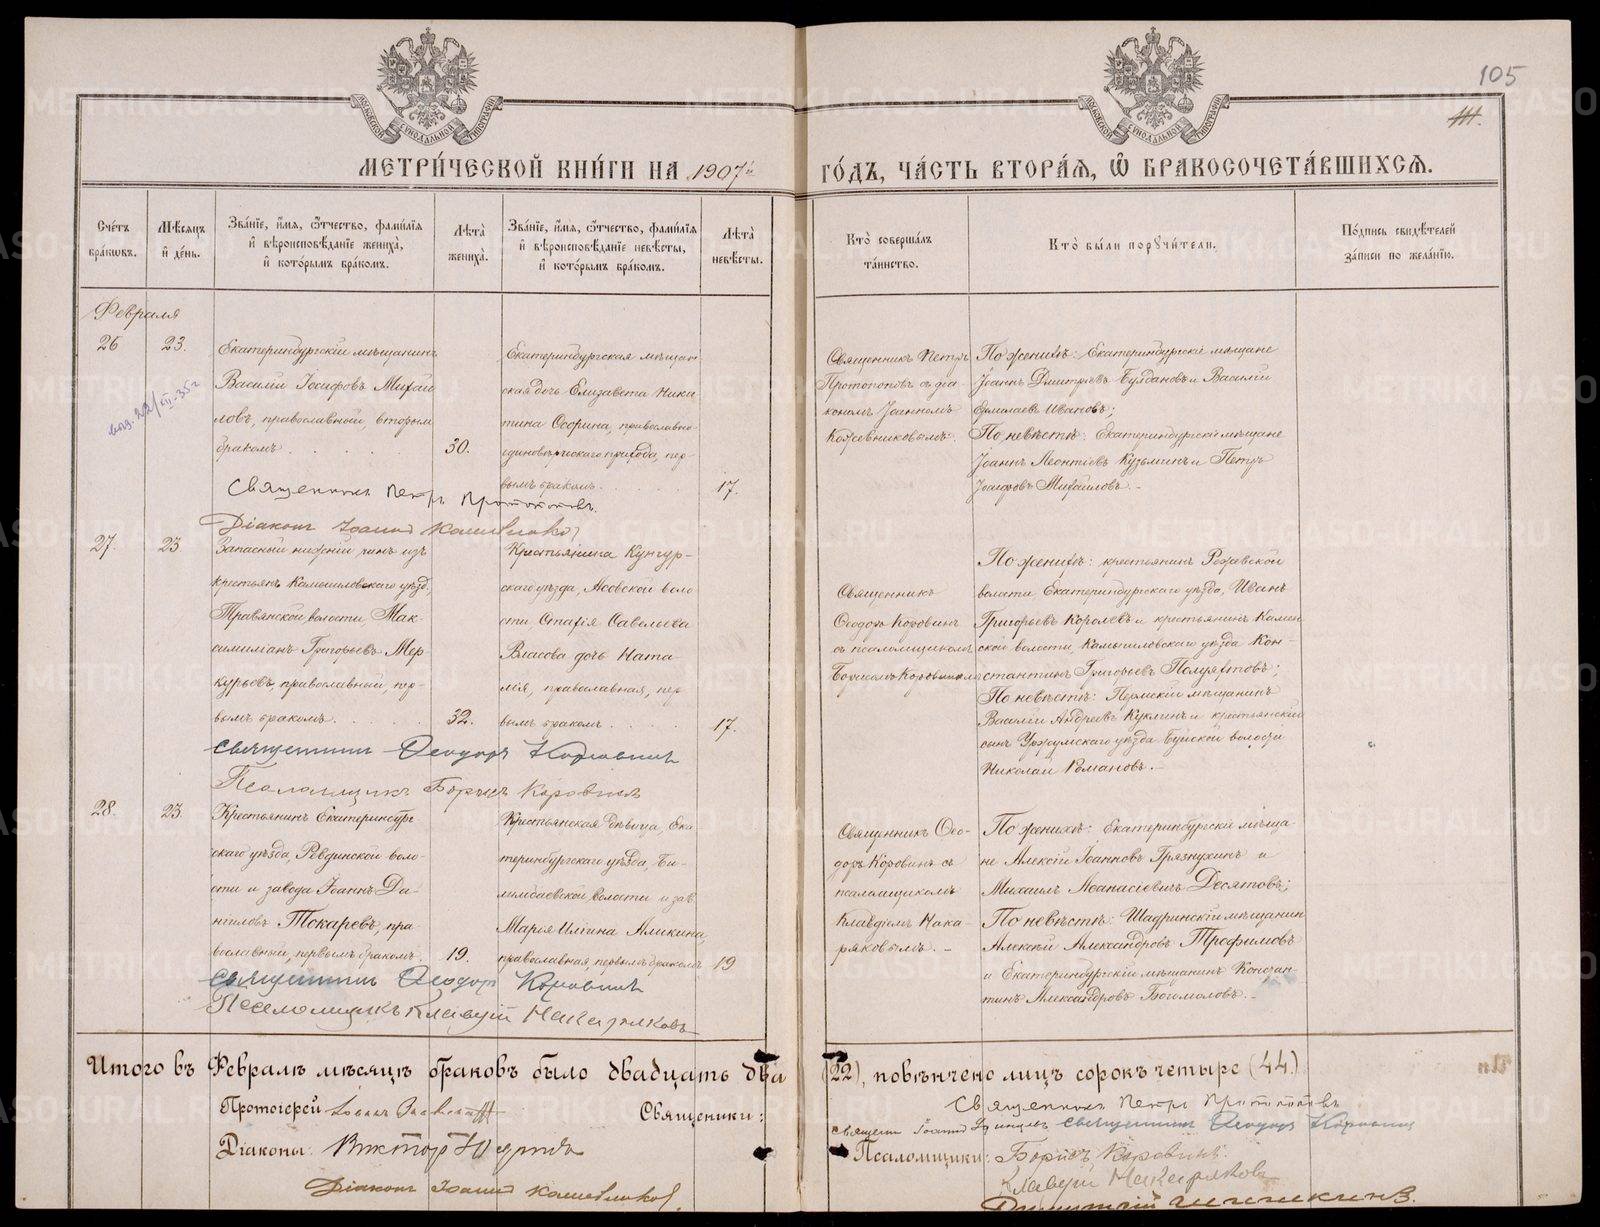 105
МЕТРИ́ЧЕСКОЙ КНИ́ГИ НА 1907й ГО́ДЪ, ЧА́СТЬ ВТОРА́Я, Ѡ БРАКОСОЧЕТА́ВШИХСЯ.
Сче́тъ бра́ковъ.
Мѣ́сяцъ и҆ де́нь.
Зва́нїе, и҆́мя, ѻ҆́тчество, фами́лїя
и҆ вѣроисповѣ́данїе жениха̀,
и҆ кото́рымъ бра́комъ.
Лѣ́та жениха̀.
Зва́нїе, и҆́мя, ѻ҆́тчество, фами́лїя
и҆ вѣроисповѣ́данїе невѣ́сты,
и҆ кото́рымъ бра́комъ.
Лѣ́та невѣ́сты.
Кто̀ соверша́лъ
та́инство.
Кто̀ бы́ли порꙋчи́тели.
По́дпись свидѣ́телей
за́писи по жела́нїю.
Февраля
26
23.
Екатеринбургскій мѣщанинъ
Василій Іосифовъ Михаи
ловъ, православный, вторым
бракомъ
30.
Екатеринбургская мѣщан
ская дочь Елизавета Ники
тина, православно
единовѣрческаго прихода, пер
вымъ бракомъ.
17.
Священникъ Петръ
Протопоповъ съ діа
кономъ Іоанномъ
Кожевниковымъ.
По женихѣ: Екатеринбургскіе мѣщане
Іоаннъ Дмитріевъ Булдаковъ и Василій
Ермолаевъ Ивановъ;
По невѣстѣ: Екатеринбургскіе мѣщане
Іоаннъ Леонтіевъ Кузьминъ и Петръ
Іосифовъ Михаиловъ.
Священникъ Петръ Протопоповъ.
Діаконъ Іоаннъ Кожевниковъ
27.
23.
Запасной нижній чинъ изъ
крестьянъ Камышловскаго уѣзд,
Травянской волости Мак-
симиліанъ Григорьевъ Мер
курьевъ, православный, пер-
вымъ бракомъ.
32.
Крестьянина Кунгур-
скаго уѣзда, Асовской воло
сти Савельева
Власова дочь Ната-
лія, православная, пер
вымъ бракомъ
17.
Священникъ
Ѳеодоръ Коровинъ
съ псаломщикомъ
Борисомъ Коровинымъ
По женихѣ: крестьянинъ Режевской
волости Екатеринбургскаго уѣзда, Иванъ
Григорьевъ Королевъ и крестьянинъ Камен
ской волости, Камышловскаго уѣзда Кон-
стантинъ Григорьевъ Полуяхтовъ;
По невѣстѣ: Пермскій мѣщанинъ
Василій Андреевъ Куклинъ и крестьянскій
сынъ Уржумскаго уѣзда Буйской волости
Николай Романовъ.
Священникъ Ѳеодоръ Коровинъ
Псаломщикъ Борисъ Коровинъ
28.
23.
Крестьянинъ Екатеринбург
скаго уѣзда, Ревдинской воло-
сти и завода Іоаннъ Да-
ниловъ Токаревъ, пра
вославный, первымъ бракомъ.
19.
Крестьянская дѣвица, Ека
теринбургскаго уѣзда, Би-
лимбаевской волости и зав.
Марія Ильина Аликина,
православная, первымъ бракомъ
19
Священникъ Ѳео-
доръ Коровинъ съ
псаломщикомъ
Клавдіемъ Мака-
ряковымъ.
По женихѣ: Екатеринбургскіе мѣща-
не Алексій Іоанновъ Грязнухинъ и
Михаилъ Аѳанасіевичъ Десятовъ;
По невѣстѣ: Шадринскій мѣщанин
Алексѣй Александровъ Трофимовъ
и Екатеринбургскій мѣщанинъ Констан-
тинъ Александровъ Богомоловъ.
Священникъ Ѳеодоръ Коровинъ
Псаломщикъ Клавдій Макаряковъ
Итого въ Февралѣ мѣсяцѣ браковъ было двадцать два (22), повѣнчено лицъ сорокъ четыре (44.)
Протоіерей Іоаннъ
Священики:
Священникъ Петръ Протопоповъ
Священ Іоаннъ Священникъ Ѳеодоръ Коровинъ
Діаконы: Викторъ
Псаломщики: Борисъ Коровинъ.
Клавдій Макаряковъ
Діаконъ Іоаннъ Кожевниковъ.
Димитрій Шишкинъ.
METRIKI.GASO-URAL.RU